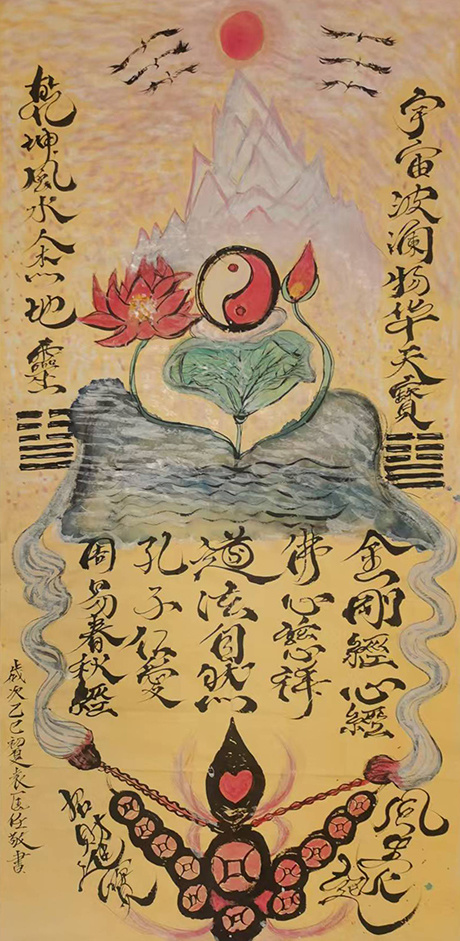 宇宙波澜物华天寳
乾坤風水人杰地靈
金剛經心經
佛心慈祥
道法自然
孔子仁愛
周易春秋經
風生水起
招財進寶
歲次乙巳初夏袁任敬書